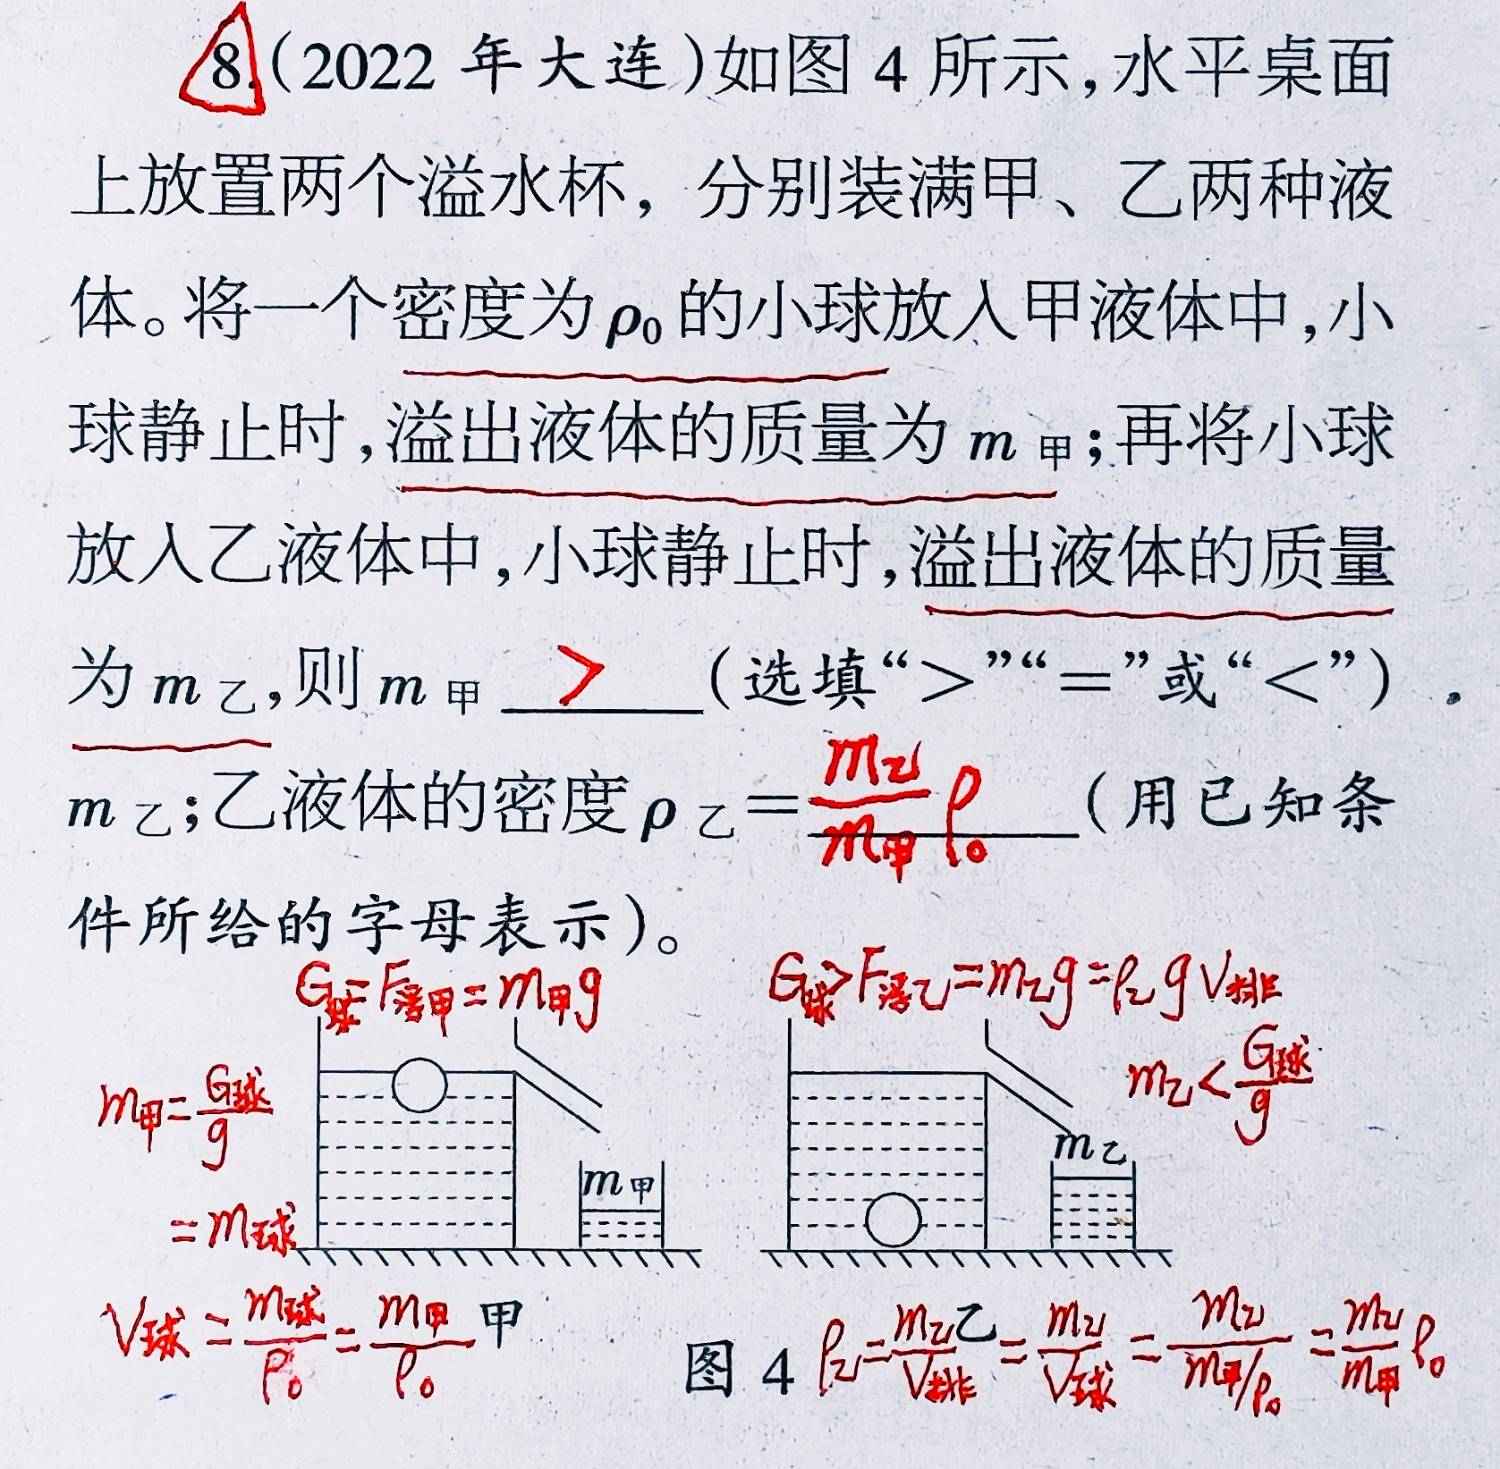 8.(2022 年大连)如图 4 所示,水平桌面
上放置两个溢水杯，分别装满甲、乙两种液
体。将一个密度为ρ₀的小球放入甲液体中,小
球静止时,溢出液体的质量为 m甲;再将小球
放入乙液体中,小球静止时,溢出液体的质量
为 m乙,则 m甲 > (选填“>”“=”或“<”)
m乙;乙液体的密度ρ乙= m乙/m甲 ρ₀ (用已知条
件所给的字母表示)。
G球=F浮甲=m甲g
G球>F浮乙=m乙g=ρ乙gV排
m甲=G球/g
m乙<G球/g
m甲
m乙
=m球
V球=m球/ρ₀=m甲/ρ₀
甲
乙
图 4
ρ乙=m乙/V排=m乙/V球=m乙/(m甲/ρ₀)=m乙/m甲 ρ₀